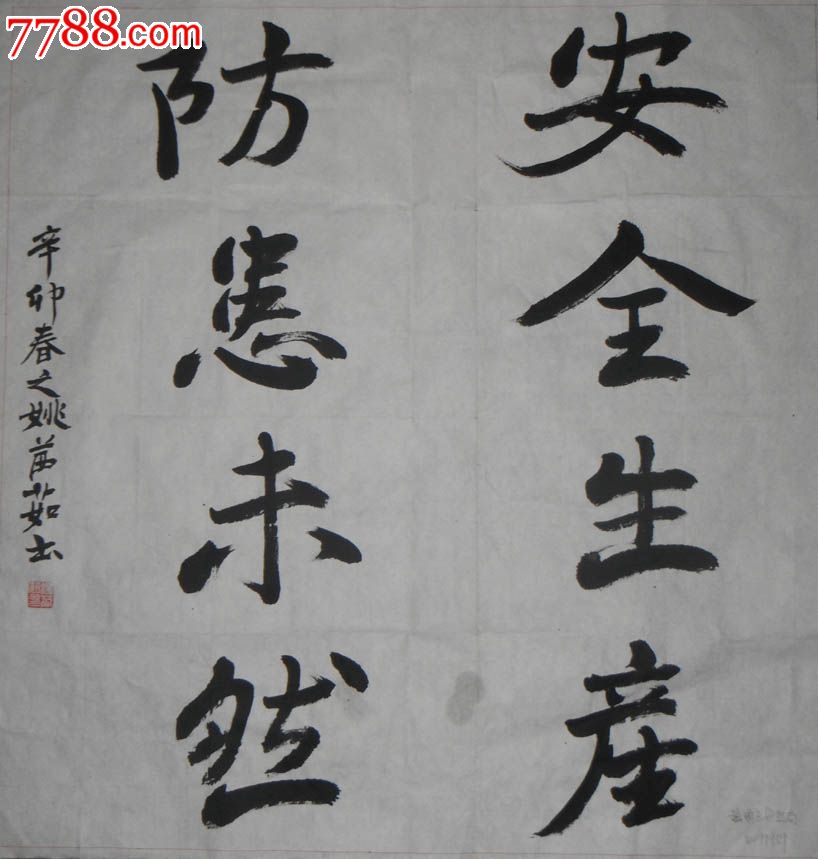 7788.com
安全生產
防患未然
辛卯春之姚茜茹书